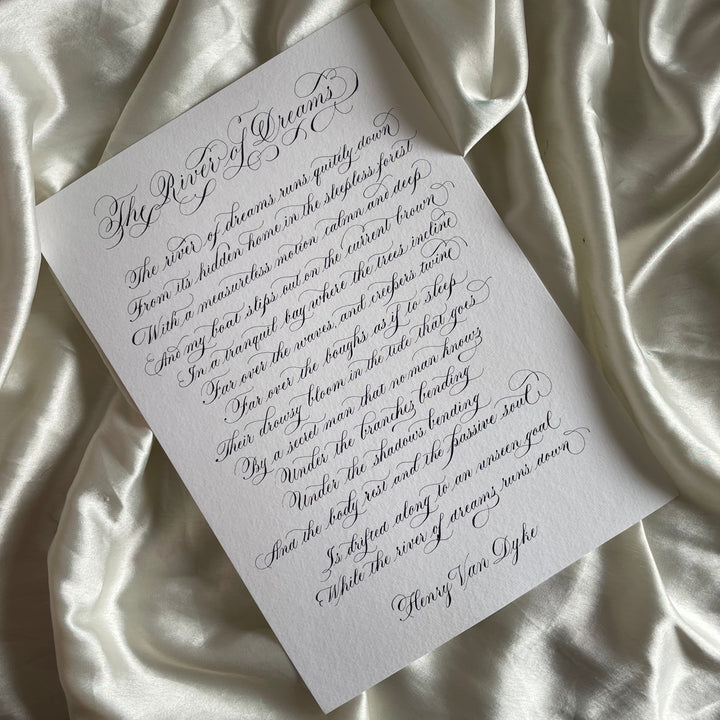 The River of Dreams
The river of dreams runs quitely down
From its hidden home in the sleepless forest
With a measureless motion calmn and deep
And my boat slips out on the current brown
In a tranquil bay where the trees incline
Far over the waves and creepers twine
Far over the boughs as if to sleep
Their drowsy bloom in the tide that goes
By a secret man that no man knows
Under the branches bending
Under the shadows bending
And the body rest and the passive soul
Is drifted along to an unseen goal
While the river of dreams runs down
Henry Van Dyke